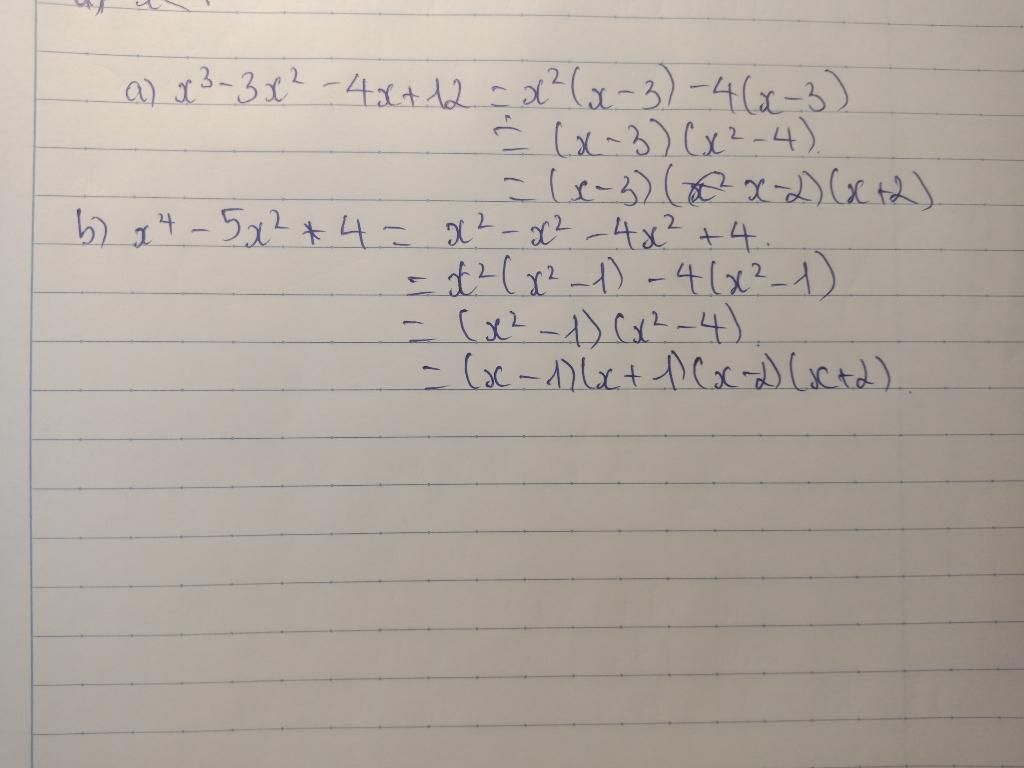 a) x³ - 3x² - 4x + 12 = x²(x - 3) - 4(x - 3)
= (x - 3)(x² - 4)
= (x - 3)(x - 2)(x + 2)
b) x⁴ - 5x² + 4 = x² - x² - 4x² + 4.
= x²(x² - 1) - 4(x² - 1)
= (x² - 1)(x² - 4)
= (x - 1)(x + 1)(x - 2)(x + 2)